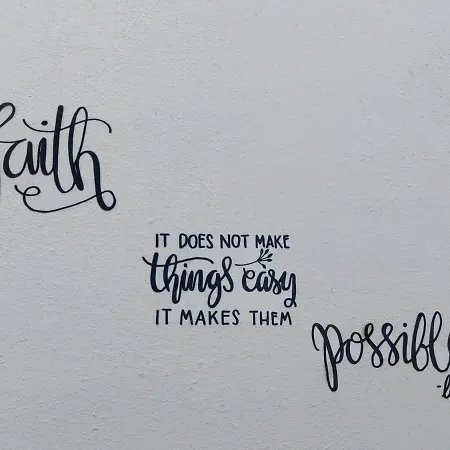 faith
IT DOES NOT MAKE
things easy
IT MAKES THEM
possibl